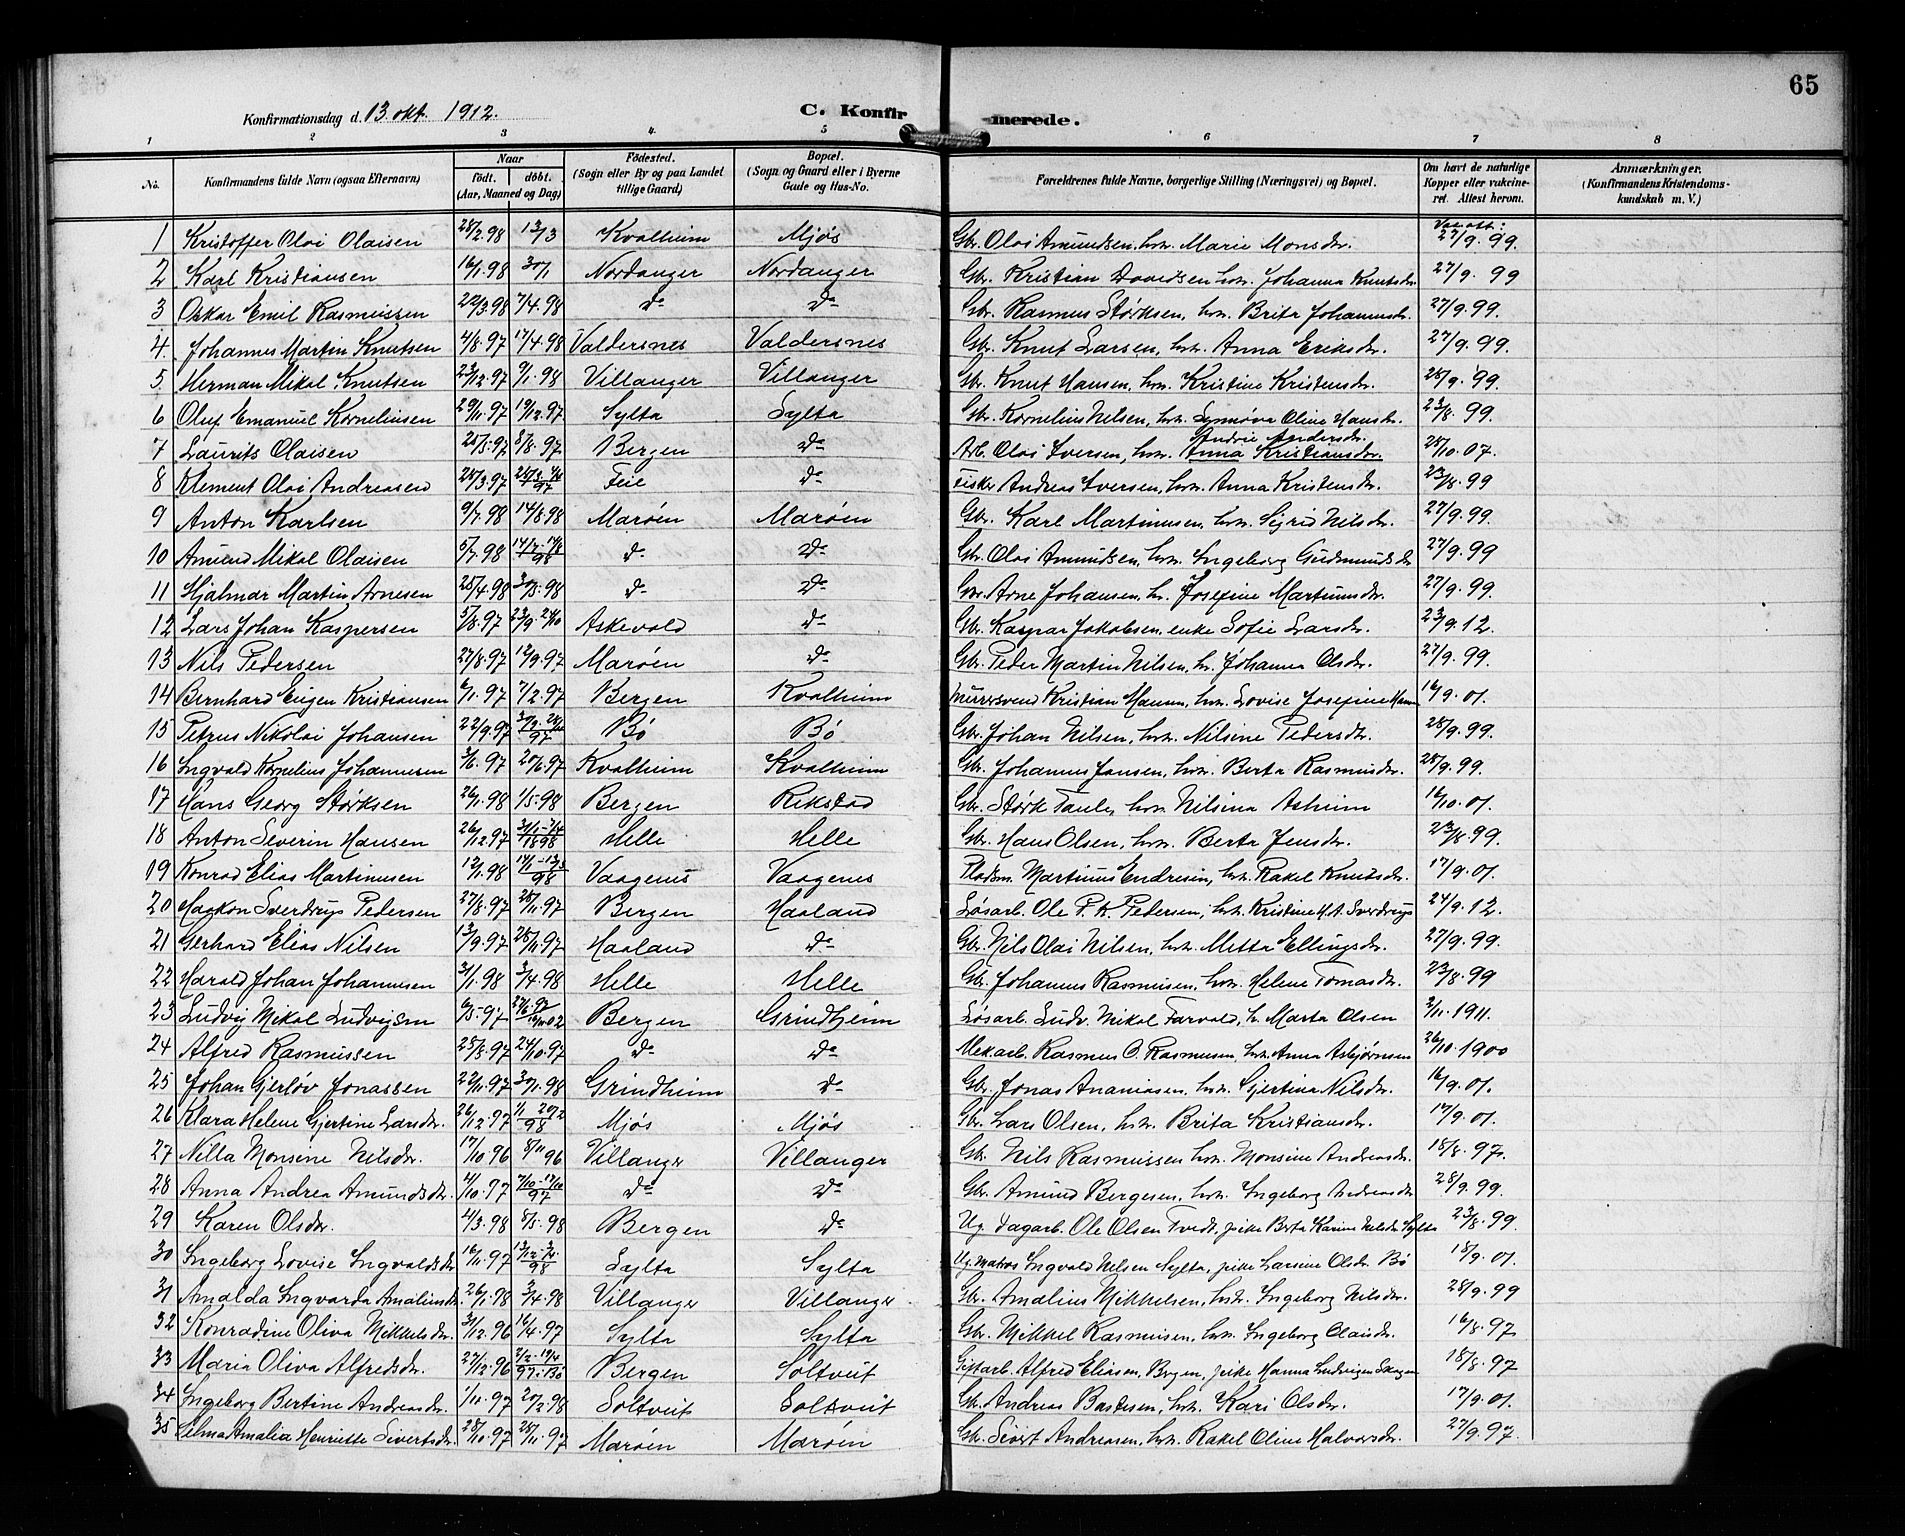 65
Konfirmationsdag d. 13. okt. 1912. C. Konfirmerede.
1 2 3 4 5 6 7 8
No. Konfirmandens fulde Navn (ogsaa Efternavn) Naar født. døbt. (Aar, Maaned og Dag) Fødested. (Sogn eller By og paa Landet tillige Gaard) Bopæl. (Sogn og Gaard eller i Byerne Gade og Hus-No. Forældrenes fulde Navne, borgerlige Stilling (Næringsvei) og Bopæl. Om havt de naturlige Kopper eller vakcineret. Attest herom. Anmærkninger. (Konfirmandens Kristendomskundskab m. V.)
1 Kristoffer Olai Olaisen 28/2.98 13/3 Kvalheim Mjøs Gbr. Olai Amundsen, hvr. Marie Monsdr. 27/9.99.
2 Karl Kristiansen 16/1.98 30/1 Nordanger Nordanger Gbr. Kristian Davidsen hvr. Johanna Knutsdr. 27/9.99
3 Oskar Emil Rasmussen 22/3.98 7/4.98 do do Gbr. Rasmus Størksen, hvr. Brita Johannesdr. 27/9.99.
4. Johannes Martin Knutsen 4/8.97 17/4.98 Valdersnes Valdersnes Gbr. Knut Larsen, hvr. Anna Eriksdr. 27/9.99.
5. Herman Mikal Knutsen 23/12.97 9/1.98 Villanger Villanger Gbr. Knut Hansen, hvr. Kristine Kristensdr. 28/9.99.
6 Oluf Emanuel Kornelinsen 29/11.97 19/12.97 Sylta Sylta Gbr. Kornelius Nilsen, hvr. Synnøva Oline Hansdr. 23/8.99.
7 Laurits Olaisen 25/5.97 8/8.97 Bergen do Arb. Olai Iversen, hvr. Anna Kristiansdr. Andrie Andersdr. 28/10.07.
8 Klement Olai Andreasen 28/3.97 Feie do Fisker Andreas Iversen, hvr. Anna Kristensdr. 23/8.99
9 Anton Karlsen 9/7.98 14/8.98 Marøen Marøen Gbr. Karl Martinusen, hvr. Sigrid Nilsdr. 27/9.99.
10 Amund Mikal Olaisen 5/7.98 do do Gbr. Olai Amundsen, hvr. Ingeborg Gudmundsdr 27/9.99
11 Hjalmar Martin Arnesen 25/4.98 30/5.98 do do Gbr. Arne Johansen, h. Josefine Martinusdr. 27/9.99.
12 Lars Johan Kaspersen 5/8.97 Askevold do Gbr. Kaspar Jakobsen, enke Sofie Larsdr. 23/9.12.
13 Nils Pedersen 27/8.97 12/9.97 Marøen do Gbr. Peder Martin Nilsen, h. Johanna Olsdr. 27/9.99.
14 Bernhard Eugen Kristiansen 6/1.97 7/2.97 Bergen Kvalheim Murersvend Kristian Hansen, hvr. Lovise Josefine 16/9.01.
15 Petrus Nikolai Johansen 22/9.97 Bø Bø Gbr. Johan Nilsen, hvr. Nilsine Pedersdtr. 28/9.99.
16 Ingvald Kornelius Johannesen 3/6.97 20/6.97 Kvalheim Kvalheim Gbr. Johannes Jansen, hvr. Berta Rasmusdr. 28/9.99.
17 Hans Georg Størksen 26/1.98 1/5.98 Bergen Rikstad Gbr. Størk Taule, hvr. Nilsina Asheim 16/10.01.
18 Anton Severin Hansen 26/12.97 Helle Helle Gbr. Hans Olsen, hvr. Berta Jensdr. 23/8.99.
19 Konrad Elias Martinusen 12/1.98 Vaagenes Vaagenes Pladsm. Martinus Endresen, hvr. Rakel Knutsdr. 17/9.01.
20 Haakon Sverdrup Pedersen 27/8.97 28/11.97 Bergen Haaland Løsarb. Ole P. K. Pedersen, hvr. Kristine M.A. Sverdrup 24/9.12.
21 Gerhard Elias Nilsen 13/9.97 28/11.97 Haaland do Gbr. Nils Olai Nilsen, hvr. Metta Ellingsdr. 27/9.99.
22 Harald Johan Johannesen 31/1.98 3/4.98 Helle Helle Gbr. Johannes Rasmusen, hvr. Helene Tomasdr. 23/8.99
23 Ludvig Mikal Ludvigsen 6/5.97 Bergen Grindheim Løsarb. Ludv. Mikal Farvold, h. Marta Olsen 2/11.1911.
24 Alfred Rasmussen 25/8.97 24/10.97 do do Mek.arb. Rasmus O. Rasmusen, hvr. Anna Asbjørnsen 26/10.1900
25 Johan Gjerløv Jonassen 22/11.97 30/1.98 Grindheim do Gbr. Jonas Ananiasen, hvr. Gjertina Nilsdr. 16/9.01.
26 Klara Helene Gjertine Larsdr. 26/12 97 Mjøs Mjøs Gbr. Lars Olsen, hvr. Brita Kristiansdr. 17/9.01.
27 Nilla Monsine Nilsdr. 17/10 96 8/11 96 Villanger Villanger Gbr. Nils Rasmussen hvr. Monsine Andreasdr. 18/8.97.
28 Anna Andrea Amundsdr. 4/10.97 do do Gbr. Amund Bergesen, hvr. Ingeborg Andreasdr 28/9.99.
29 Karen Olsdr. 4/3.98 8/5.98 Bergen do Ug. dagarb. Ole Olsen Tvedt, pike Berta Karine Nilsdr Sylta 23/8.99.
30 Ingeborg Lovise Ingvaldsdr 16/11.97 Sylta Sylta Ug. matros Ingvald Nilsen Sylta, pike Larsine Olsdr. Bø 18/9.01.
31 Amalda Ingvarda Amaliusdr. 26/1.98 3/4.98 Villanger Villanger Gbr. Amalius Mikkelsen, hvr. Ingeborg Nilsdr. 28/9.99
32 Konradine Oliva Mikkelsdr. 31/12.96 16/4.97 Sylta Sylta Gbr. Mikkel Rasmusen, hvr. Ingeborg Olaisdr. 16/8.97
33 Maria Oliva Alfredsdr. 27/12.96 Bergen Soltveit Giftarb. Alfred Eliasen, Bergen, pike Hanna Ludvigsen 18/8.97
34 Ingeborg Bertine Andreasdr. 1/11.97 20/2.98 Soltveit Soltveit Gbr. Andreas Bastesen, hvr. Kari Olsdr. 17/9.01.
35 Selma Amalia Henriette Sivertsdr. 28/10.97 28/11.97 Marøen Marøen Gbr. Sivert Andreasen, hvr. Rakel Oline Halvorsdr. 27/9.97.